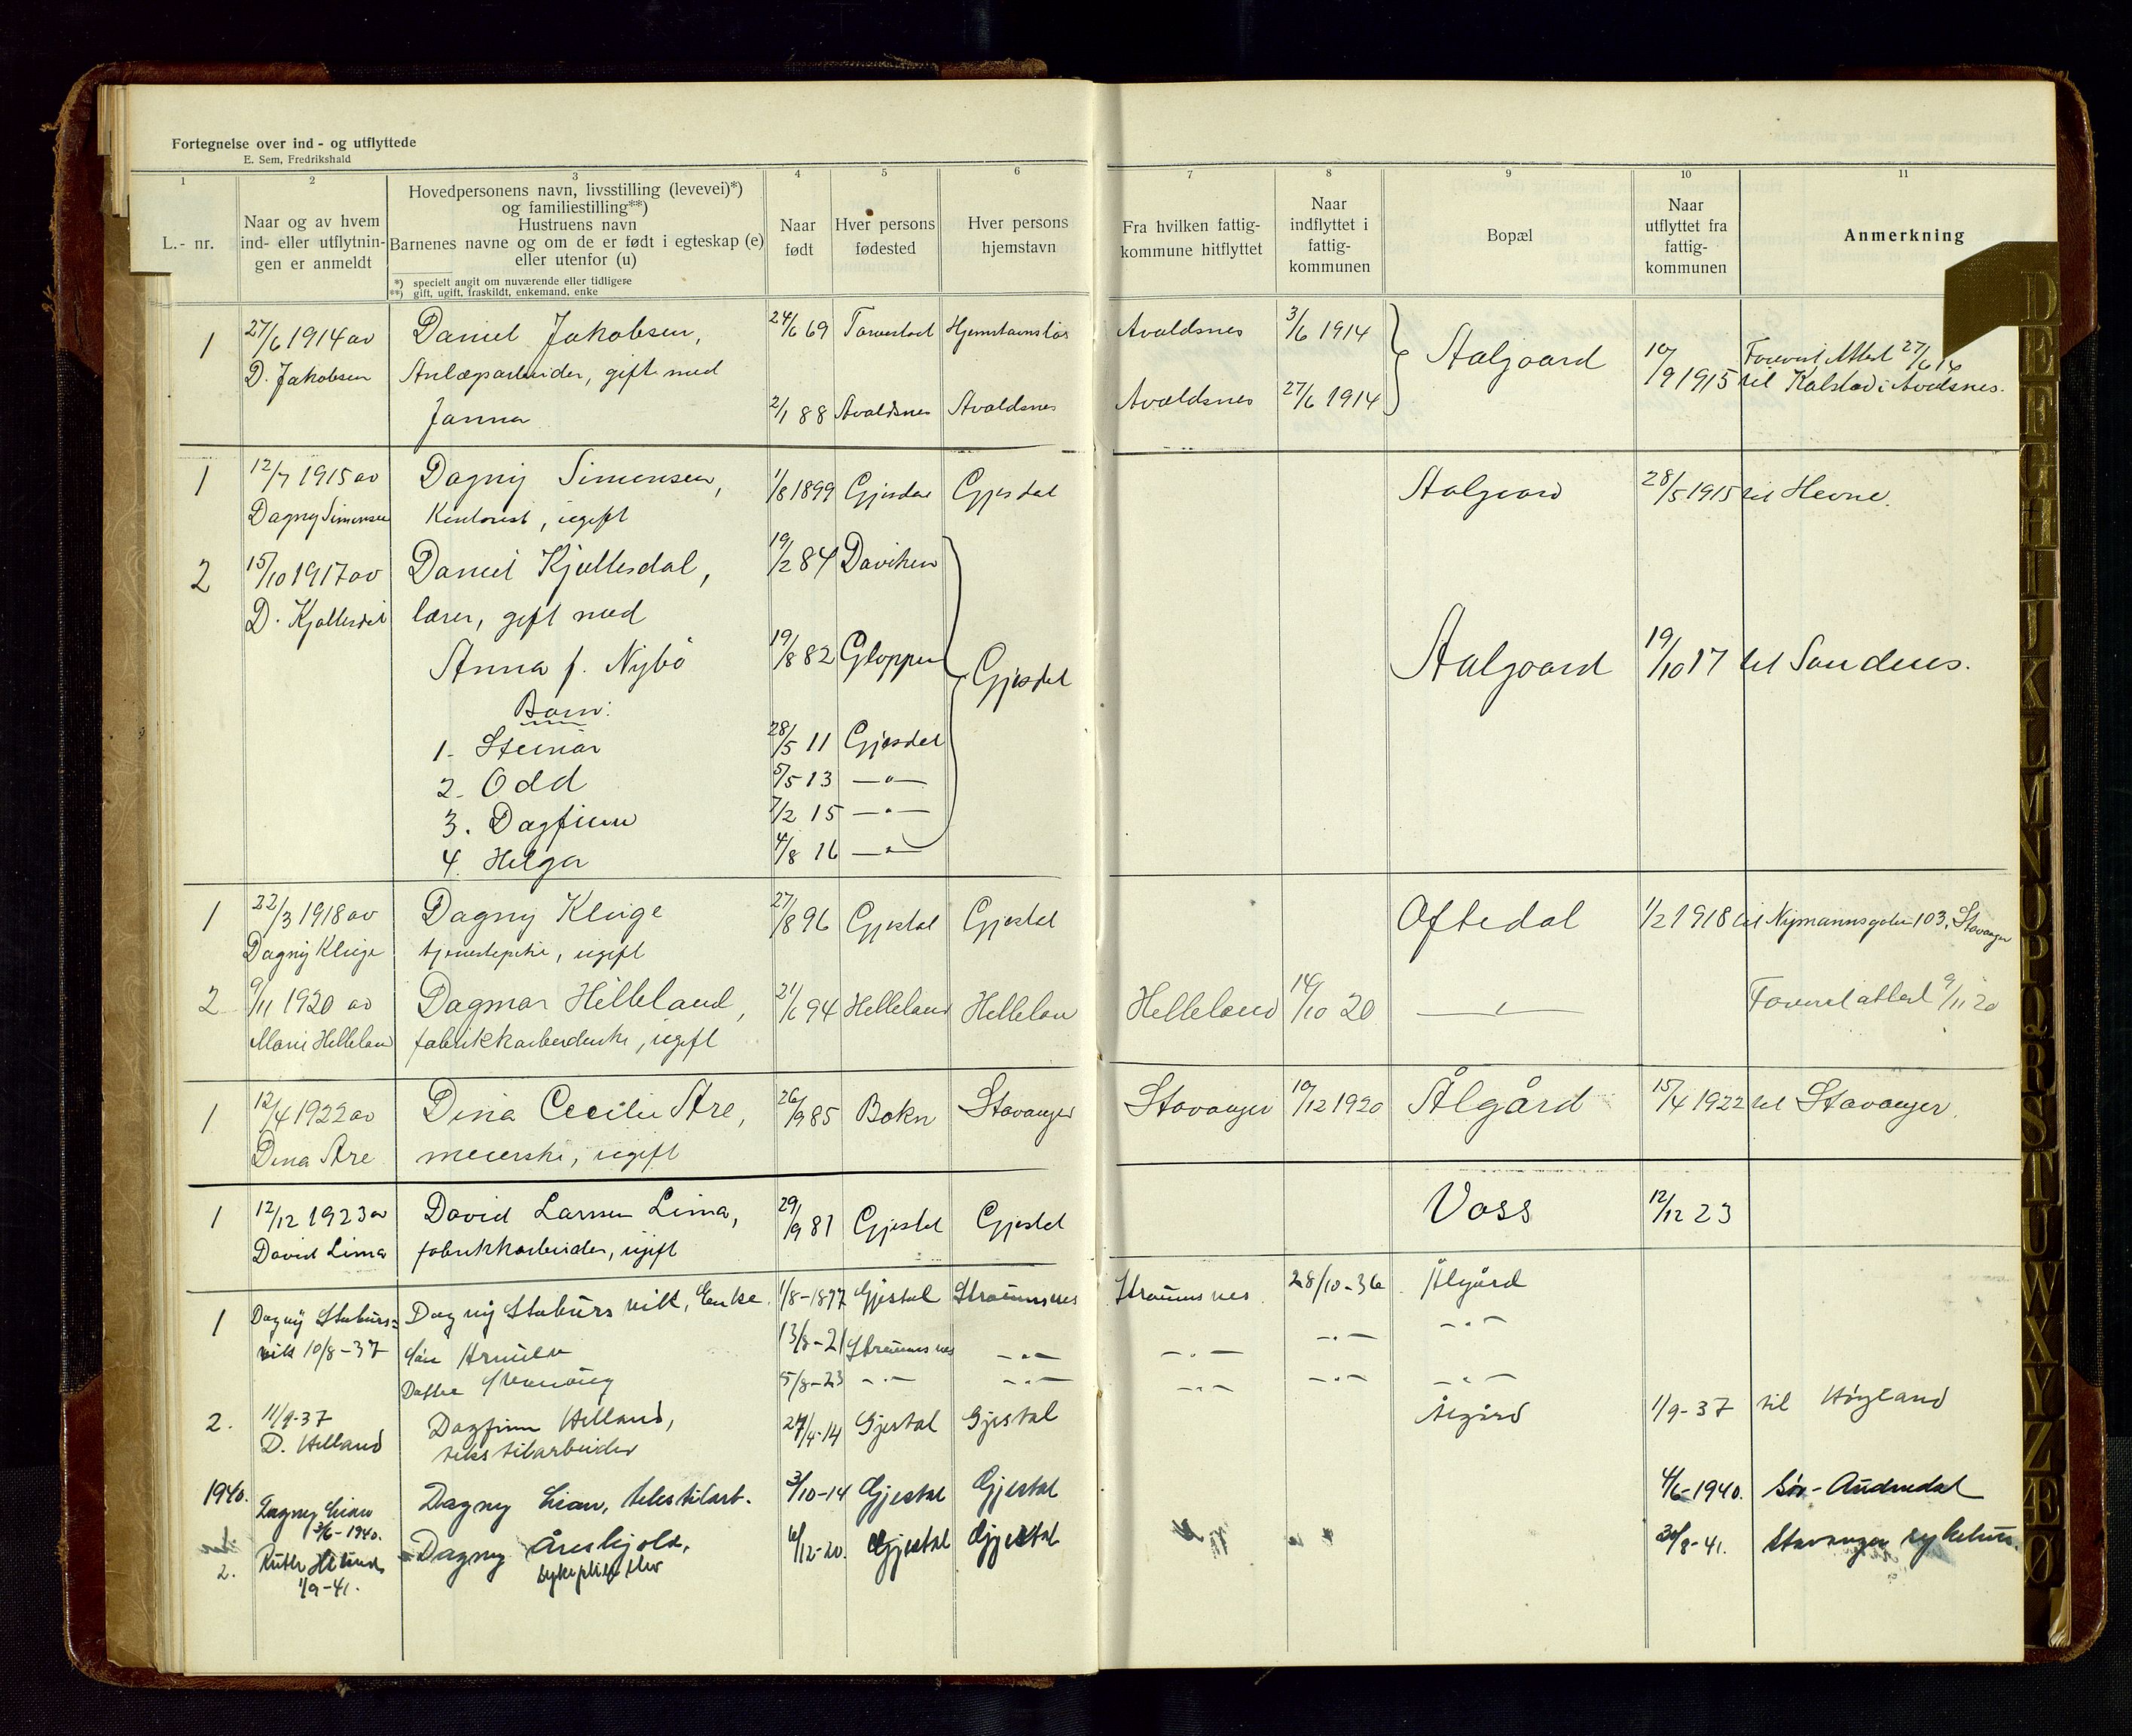 Fortegnelse over ind- og utflyttede
E. Sem, Fredrikshald
1 2 3 4 5 6 7 8 9 10 11
L.- nr.
Naar og av hvem
ind- eller utflytnin-
gen er anmeldt
Hovedpersonens navn, livsstilling (levevei)*)
og familiestilling**)
Hustruens navn
Barnenes navne og om de er født i egteskap (e)
eller utenfor (u)
*) specielt angit om nuværende eller tidligere
**) gift, ugift, fraskildt, enkemand, enke
Naar
født
Hver persons
fødested
Hver persons
hjemstavn
Fra hvilken fattig-
kommune hitflyttet
Naar
indflyttet i
fattig-
kommunen
Bopæl
Naar
utflyttet fra
fattig-
kommunen
Anmerkning
1 27/6 1914 av Daniel Jakobsen, 24/6 69 Torvestad Hjemstavnsløs Avaldsnes 3/6 1914 Aalgaard 10/9 1915 Forevist Attest 27/6 14
D. Jakobsen Anlægsarbeider, gift med til Kalstad i Avaldsnes.
Janna 2/1 88 Avaldsnes Avaldsnes Avaldsnes 27/6 1914
1 12/7 1915 av Dagny Simonsen, 1/8 1899 Gjesdal Gjesdal Aalgaard 28/5 1915 til Hevne.
Dagny Simonsen Kontorist, ugift
2 15/10 1917 av Daniel Kjøllesdal, 19/2 84 Daviken
D. Kjøllesdal lærer, gift med
Anna f. Nybø 19/8 82 Gloppen Gjesdal Aalgaard 19/10 17 til Sandnes.
Barn:
1. Steinar 28/5 11 Gjesdal
2. Odd 5/5 13 — " —
3. Dagfinn 7/2 15 — " —
4. Helga 4/8 16 — " —
1 22/3 1918 av Dagny Kluge 27/8 96 Gjesdal Gjesdal Oftedal 1/2 1918 til Nymannsgaten 103, Stavanger
Dagny Kluge tjenestepike, ugift
2 9/11 1920 av Dagmar Helleland, 21/6 94 Helleland Helleland Helleland 14/10 20 — " — Forevist attest 9/11 20
Marie Helleland fabrikkarbeiderske, ugift
1 12/4 1922 av Dina Cecilie Are, 26/9 85 Bokn Stavanger Stavanger 10/12 1920 Ålgård 15/4 1922 til Stavanger.
Dina Are meierske, ugift
1 12/12 1923 av David Larsen Lima, 29/9 81 Gjesdal Gjesdal Voss 12/12 23
David Lima fabrikkarbeider, ugift
1 Dagny Staburs= Dagny Stabursvik, Enke. 1/8-1897 Gjestal Straumsnes Straumsnes 28/10-36 Ålgård
vik 10/8-37 Søn 13/8-21 Straumsnes — " — — " — — " — — " —
Datter 5/8-23 — " — — " — — " — — " — — " —
2. 11/9-37 Dagfinn Helland, 27/4-14 Gjestal Gjestal Ålgård 1/9-37 til Høyland
D. Helland tekstilarbeider
1940. Dagny Lian Dagny Lian, tekstilarb. 3/10-14 Gjestal Gjestal 4/6-1940. Sør-Audnedal
3/6-1940.
2. Ruth Dagny Åreskjold, 6/12-20. Gjestal Gjestal 30/8-41. Stavanger sykehus.
1/9-41. sykepleielev
D
E
F
G
H
I
J
K
L
M
N
O
P
Q
R
S
T
U
W
X
Y
Z
Æ
Ø